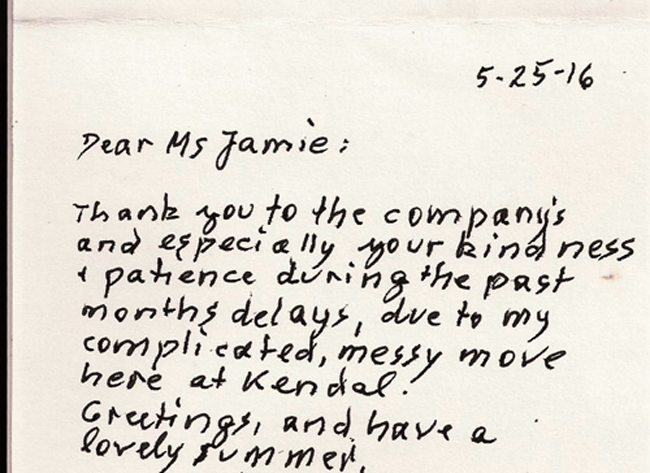 5-25-16
Dear Ms Jamie:
Thank you to the company's
and especially your kindness
+ patience during the past
months delays, due to my
complicated, messy move
here at Kendal.
Greetings, and have a
lovely summer.